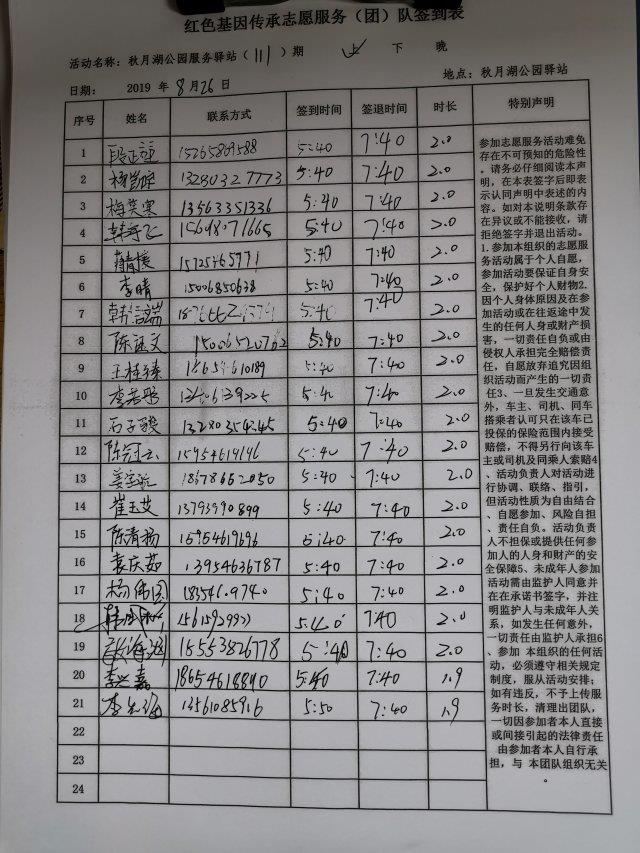 红色基因传承志愿服务（团）队签到表
活动名称：秋月湖公园服务驿站（111）期 上 下 晚
日期： 2019 年 8月26日 地点：秋月湖公园驿站
序号 姓名 联系方式 签到时间 签退时间 时长 特别声明
1 5:40 7:40 2.0
2 13280327773 5:40 7:40 2.0
3 梅笑寒 13563351336 5:40 7:40 2.0
4 15698071665 5:40 7:40 2.0
5 5:40 7:40 2.0
6 李晴 15006850638 5:40 7:40 2.0
7 5:40 7:40 2.0
8 15006520762 5:40 7:40 2.0
9 5:40 7:40 2.0
10 5:40 7:40 2.0
11 5:40 7:40 2.0
12 15954619696 5:40 7:40 2.0
13 18678662050 5:40 7:40 2.0
14 崔玉艾 13793990899 5:40 7:40 2.0
15 陈清扬 15954619696 5:40 7:40 2.0
16 袁庆茹 13954636787 5:40 7:40 2.0
17 杨伟国 18354609740 5:40 7:40 2.0
18 5:40 7:40 2.0
19 15553826778 5:40 7:40 2.0
20 李兴嘉 18654618890 5:40 7:40 1.9
21 13561085916 5:50 7:40 1.9
22
23
24
参加志愿服务活动难免
存在不可预知的危险性
，请务必仔细阅读本声
明，在本表签字后即表
示认同声明中表述的内
容。如对本说明条款存
在异议或不能接收，请
拒绝签字并退出活动。
1.参加本组织的志愿服
务活动属于个人自愿，
参加活动要保证自身安
全，保护好个人财物2.
因个人身体原因及在参
加活动或在往返途中发
生的任何人身或财产损
害，一切责任自负或由
侵权人承担完全赔偿责
任，自愿放弃追究因组
织活动而产生的一切责
任3、一旦发生交通意
外，车主、司机、同车
搭乘者认可只在该车已
投保的保险范围内接受
赔偿，不得另行向该车
主或司机及同乘人索赔4
、活动负责人对活动进
行协调、联络、指引，
但活动性质为自由结合
、自愿参加、风险自担
、责任自负。活动负责
人不担保或提供任何参
加人的人身和财产的安
全保障5、未成年人参加
活动需由监护人同意并
在在承诺书签字，并注
明监护人与未成年人关
系，如发生任何意外，
一切责任由监护人承担6
、参加 本组织的任何活
动，必须遵守相关规定
制度，服从活动安排；
如有违反，不予上传服
务时长，清理出团队，
一切因参加者本人直接
或间接引起的法律责任
由参加者本人自行承
担，与 本团队组织无关
。